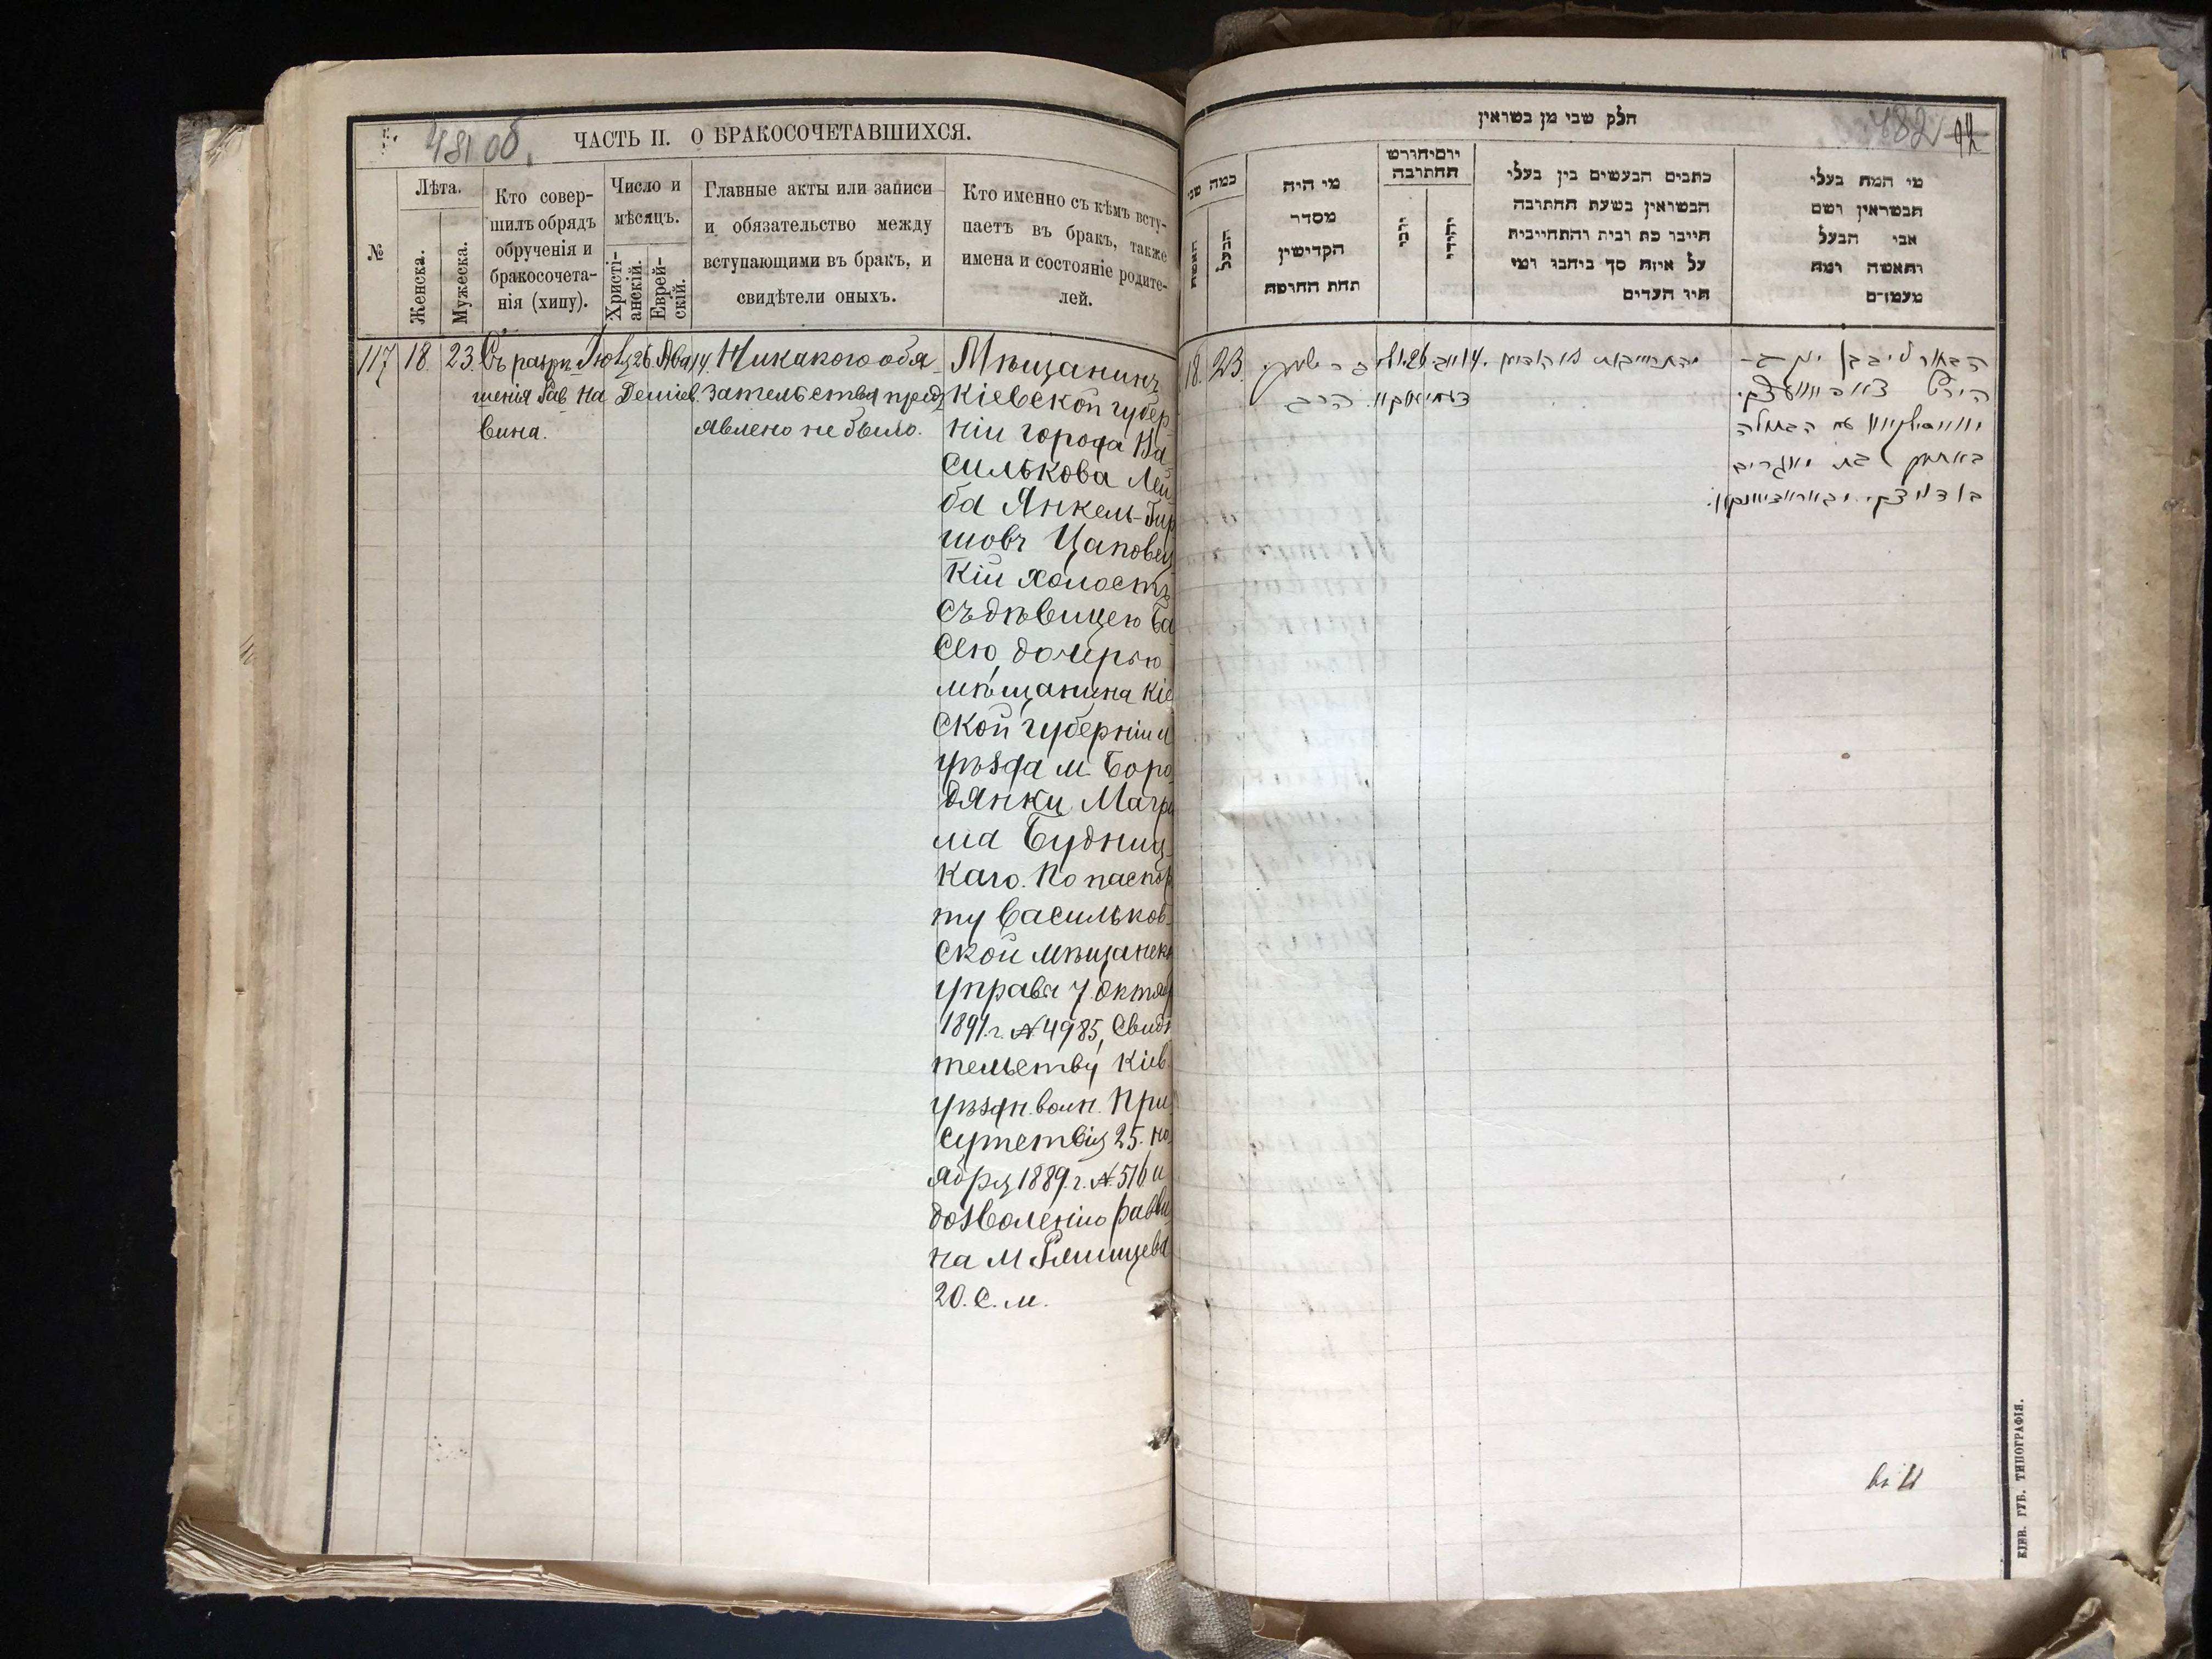 481 об.
ЧАСТЬ II. О БРАКОСОЧЕТАВШИХСЯ.
№
Лѣта.
Женска.
Мужеска.
Кто совер-
шилъ обрядъ
обрученія и
бракосочета-
нія (хипу).
Число и
мѣсяцъ.
Христі-
анскій.
Еврей-
скій.
Главные акты или записи
и обязательство между
вступающими въ бракъ, и
свидѣтели оныхъ.
Кто именно съ кѣмъ всту-
паетъ въ бракъ, также
имена и состояніе родите-
лей.
117 18. 23.
Съ разрѣ-
шенія Рав
вина.
26 14.
На Деміев.
Никакого обя-
зательства предъ
явлено не было.
Мѣщанинъ
Кіевской губер
ніи города Ва
силькова Лей
ба Янкель-Гир
шовъ Цаповец
кій холостъ
съ дѣвицею Ба
сею, дочерью
мѣщанина Кіе
ской губерніи и
уѣзда м. Боро
дянки Магре
ма Будниц
каго. По паспор
ту Васильков-
ской мѣщанск
управы 7 октяб
1891 г. № 4985, Свидѣ
тельству Кіев.
уѣздн. воин. При
сутствія 25. но
ября 1889. г. № 516 и
дозволенію равви
на М
20. с. м.
חלק שני מן נשואין
482
92
כמה שני
האשה
הבעל
מי היה
מסדר
הקדישין
תחת החופה
יום וחודש
החתונה
יוני
יהודי
כתבים הנעשים בין בעלי
הנשואין בשעת החתונה
חייבו כת ובית והתחייבות
על איזה סך ביניהם ומי
היו העדים
מי המה בעלי
הנשואין ושם
אבי הבעל
והאשה ומה
מעמדם
18. 23.
הרב
26
14.
הבחור ליב בן ינקב-
הירש
עם הבתולה
באסיע בת
КІЕВ. ГУБ. ТИПОГРАФІЯ.